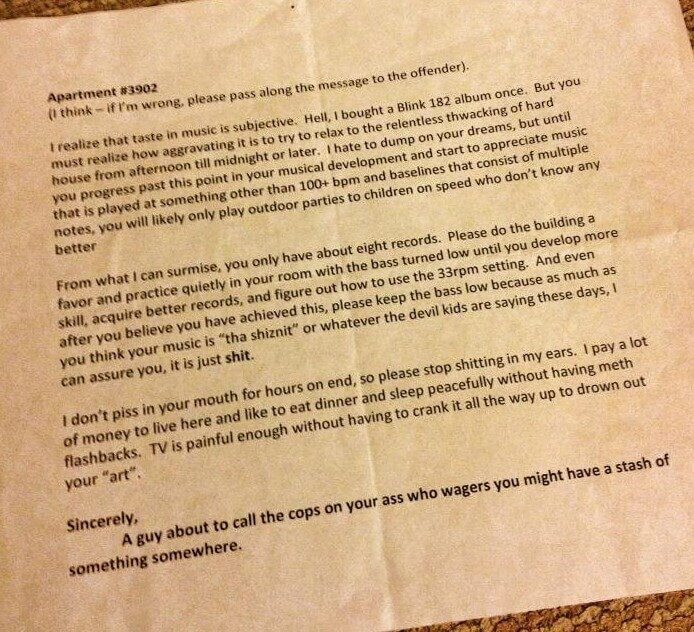 Apartment #3902
(I think – if I'm wrong, please pass along the message to the offender).
I realize that taste in music is subjective. Hell, I bought a Blink 182 album once. But you
must realize how aggravating it is to try to relax to the relentless thwacking of hard
house from afternoon till midnight or later. I hate to dump on your dreams, but until
you progress past this point in your musical development and start to appreciate music
that is played at something other than 100+ bpm and baselines that consist of multiple
notes, you will likely only play outdoor parties to children on speed who don't know any
better
From what I can surmise, you only have about eight records. Please do the building a
favor and practice quietly in your room with the bass turned low until you develop more
skill, acquire better records, and figure out how to use the 33rpm setting. And even
after you believe you have achieved this, please keep the bass low because as much as
you think your music is "tha shiznit" or whatever the devil kids are saying these days, I
can assure you, it is just shit.
I don't piss in your mouth for hours on end, so please stop shitting in my ears. I pay a lot
of money to live here and like to eat dinner and sleep peacefully without having meth
flashbacks. TV is painful enough without having to crank it all the way up to drown out
your "art".
Sincerely,
A guy about to call the cops on your ass who wagers you might have a stash of
something somewhere.